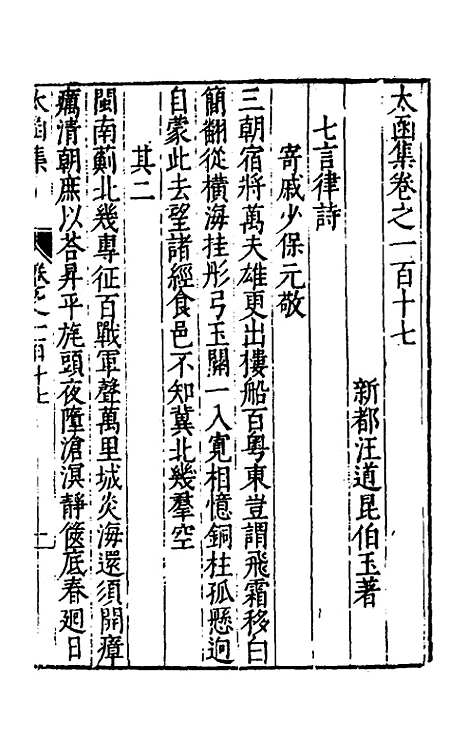 太函集卷之一百十七
新都汪道昆伯玉著
七言律詩
寄戚少保元敬
三朝宿將萬夫雄更出樓船百粤東豈謂飛霜移白
簡翻從橫海挂彤弓玉關一入寛相憶銅柱孤懸迥
自蒙此去望諸經食邑不知冀北幾羣空
其二
閩南薊北幾專征百戰軍聲萬里城炎海還須開瘴
癘清朝庶以荅昇平旄頭夜墮滄溟靜篋底春廻日
太函集
卷之一百十七
一